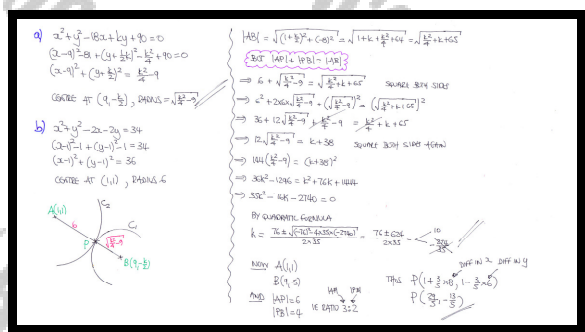 a) x²+y²-18x+ky+90=0
(x-9)²-81+(y+½k)²-k²/4+90=0
(x-9)²+(y+k/2)²=k²/4-9
CENTRE AT (9,-k/2), RADIUS=√(k²/4-9)
b) x²+y²-2x-2y=34
(x-1)²-1+(y-1)²-1=34
(x-1)²+(y-1)²=36
CENTRE AT (1,1), RADIUS 6
C₂
A(1,1)
6
C₁
P
√(k²/4-9)
B(9,-k/2)
|AB|=√((1+k/2)²+(-8)²)=√(1+k+k²/4+64)=√(k²/4+k+65)
BUT |AP|+|PB|=|AB|
⇒ 6+√(k²/4-9)=√(k²/4+k+65) SQUARE BOTH SIDES
⇒ 6²+2×6×√(k²/4-9)+(√(k²/4-9))²=(√(k²/4+k+65))²
⇒ 36+12√(k²/4-9)+k²/4-9=k²/4+k+65
⇒ 12√(k²/4-9)=k+38 SQUARE BOTH SIDES AGAIN
⇒ 144(k²/4-9)=(k+38)²
⇒ 36k²-1296=k²+76k+1444
⇒ 35k²-76k-2740=0
BY QUADRATIC FORMULA
k=(76±√((-76)²-4×35×(-2740)))/(2×35)=(76±624)/(2×35)=
10
NOW A(1,1)
B(9,-5)
AND |AP|=6
|PB|=4
IE RATIO 3:2
|AP| |PB|
DIFF IN X DIFF IN Y
THUS P(1+3/5×8, 1-3/5×6)
P(29/5,-13/5)